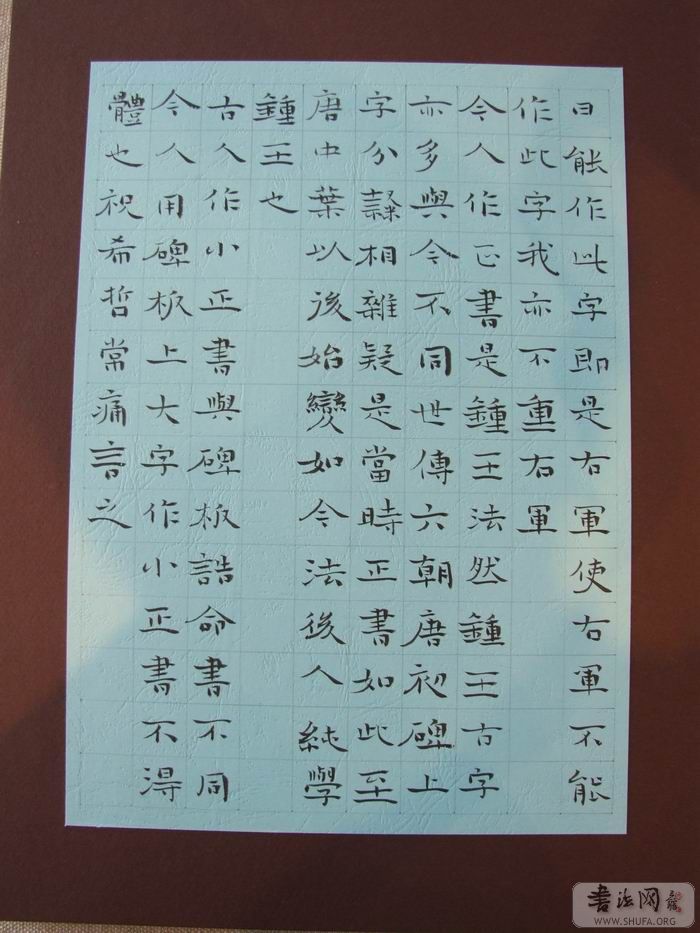 日能作此字即是右軍使右軍不能
作此字我亦不重右軍
今人作正書是鍾王法然鍾王古字
亦多與今不同世傳六朝唐初碑上
字分隸相雜疑是當時正書如此至
唐中葉以後始變如今法後人純學
鍾王也
古人作小正書與碑板誥命書不同
今人用碑板上大字作小正書不得
體也祝希哲常痛言之
书法网
WWW.SHUFA.ORG